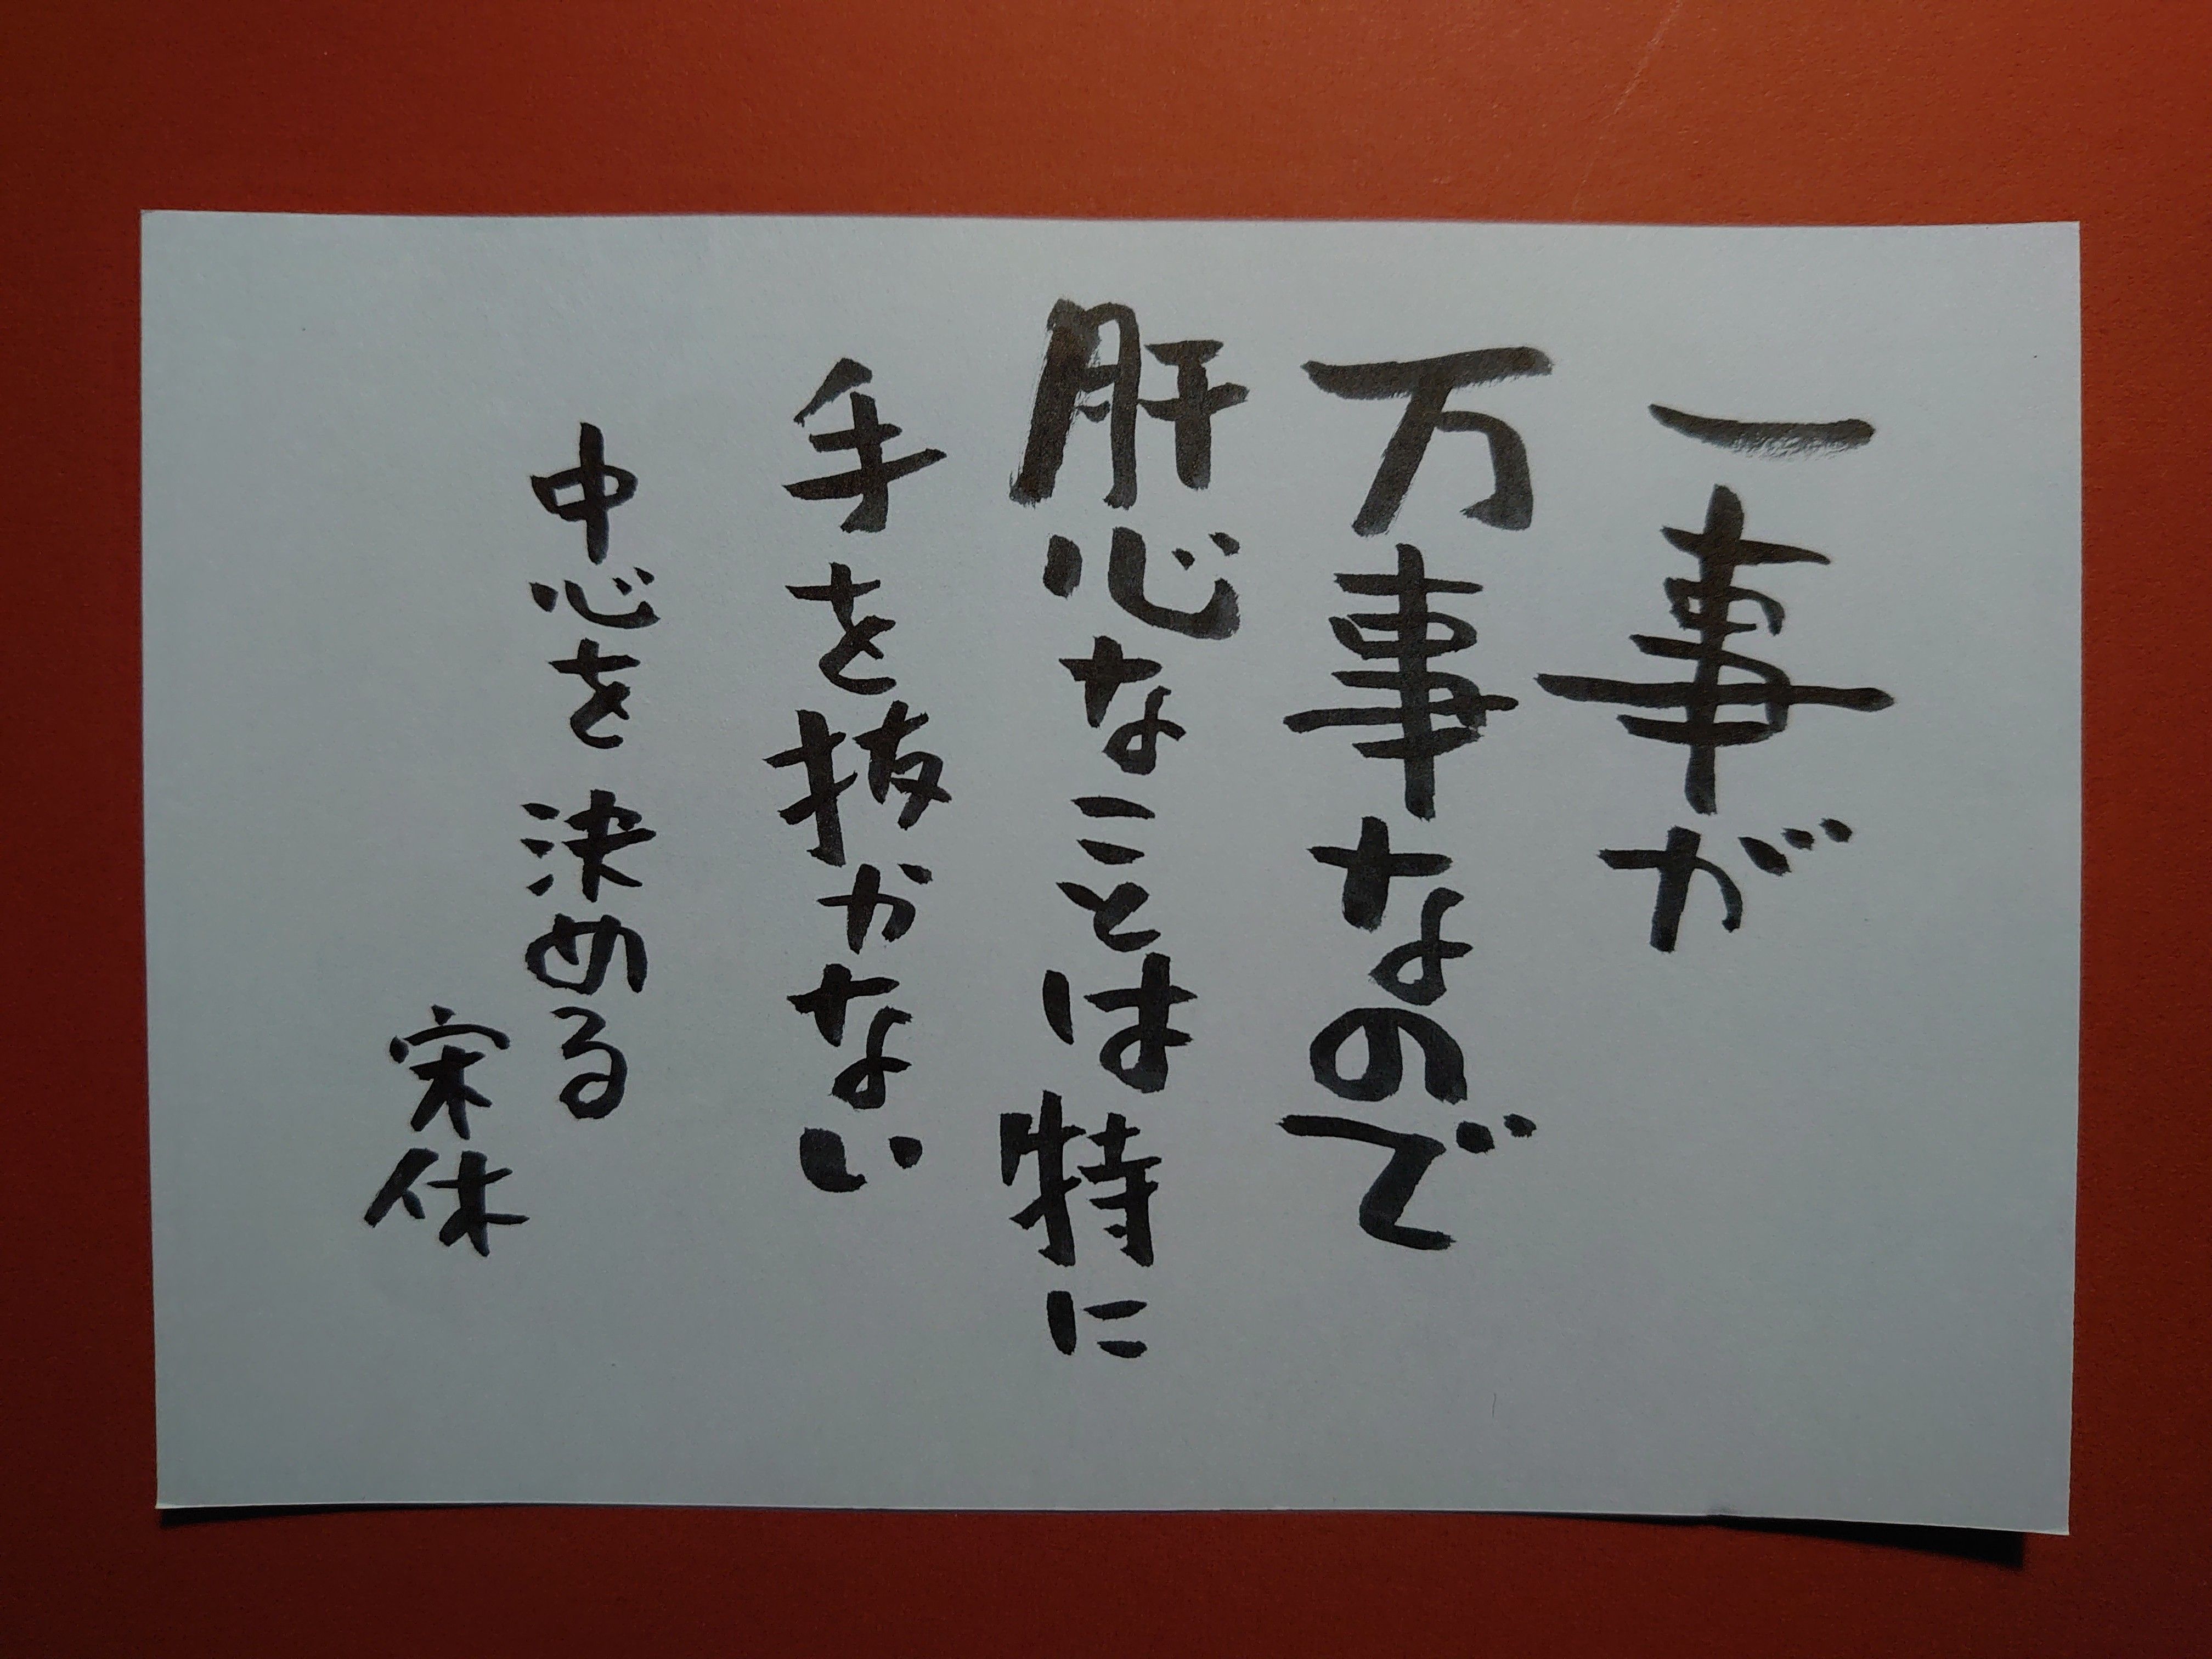 一事が
万事なので
肝心なことは特に
手を抜かない
中心を決める
宋休